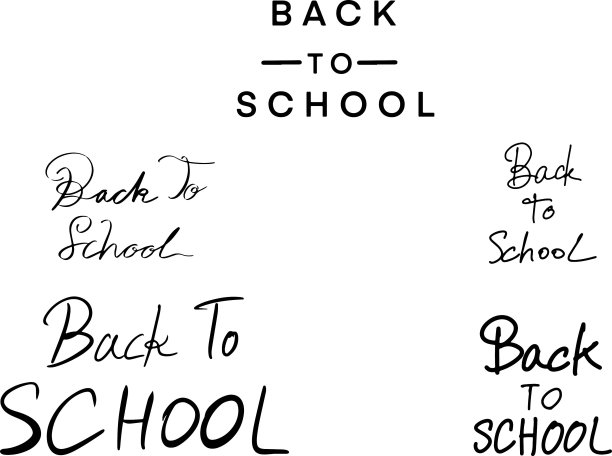 BACK
TO
SCHOOL
Back To
School
Back
To
School
Back To
SCHOOL
Back
TO
SCHOOL